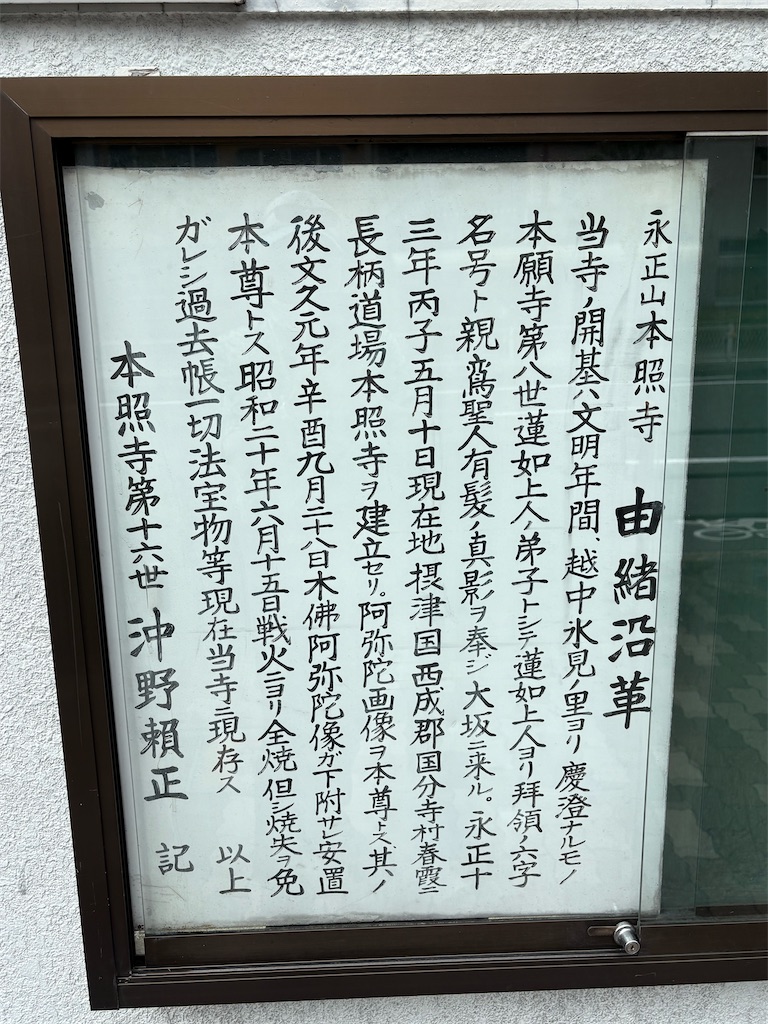 永正山本照寺 由緒沿革
当寺ノ開基ハ文明年間、越中氷見ノ里ヨリ慶澄ナルモノ
本願寺第八世蓮如上人ノ弟子トシテ蓮如上人ヨリ拝領ノ六字
名号ト親鸞聖人有髪ノ真影ヲ奉ジ大坂ニ来ル。永正十
三年丙子五月十日現在地摂津国西成郡国分寺村春霞ニ
長柄道場本照寺ヲ建立セリ。阿弥陀画像ヲ本尊トス其ノ
後文久元年辛酉九月二十八日木佛阿弥陀像ガ下附サレ安置
本尊トス昭和二十年六月十五日戦火ニヨリ全焼但シ焼失ヲ免
ガレシ過去帳一切法宝物等現在当寺ニ現存ス 以上
本照寺第十六世 沖野頼正 記